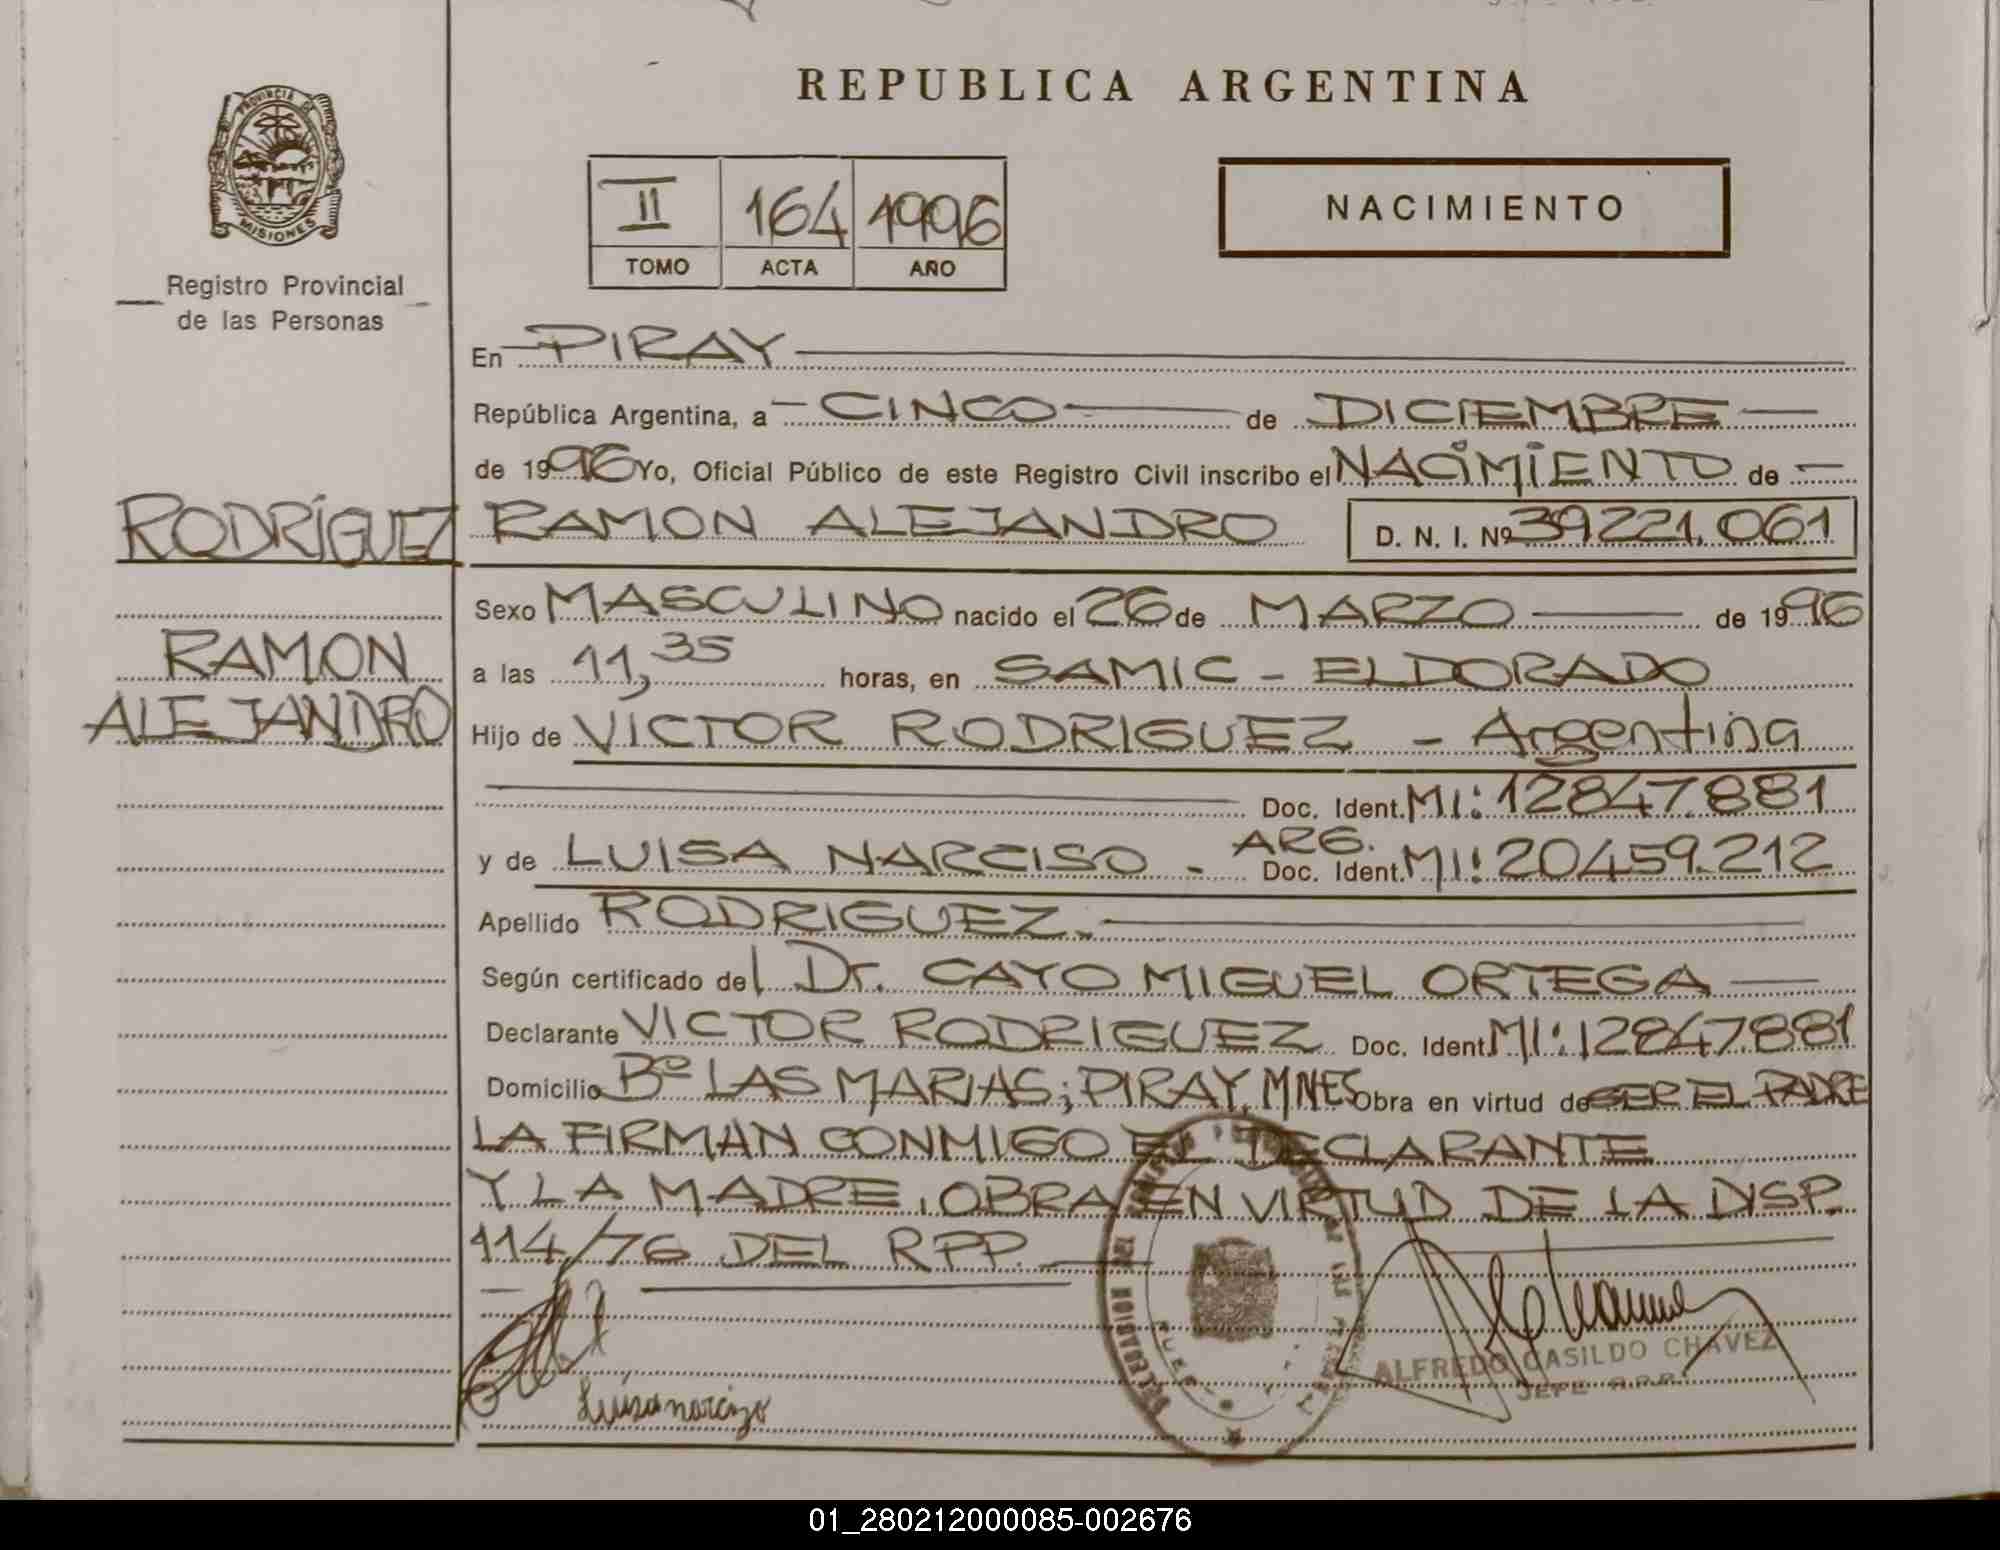 REPUBLICA ARGENTINA
PROVINCIA DE
MISIONES
Registro Provincial
de las Personas
II 164 1996
TOMO ACTA AÑO
NACIMIENTO
En PIRAY
República Argentina, a CINCO de DICIEMBRE
de 1996 Yo, Oficial Público de este Registro Civil inscribo el NACIMIENTO de
RODRÍGUEZ RAMON ALEJANDRO D. N. I. Nº 39221.061
Sexo MASCULINO nacido el 26 de MARZO de 1996
RAMON
ALEJANDRO
a las 11,35 horas, en SAMIC - ELDORADO
Hijo de VICTOR RODRIGUEZ - Argentina
Doc. Ident. MI: 12847.881
y de LUISA NARCISO - ARG. Doc. Ident. MI: 20459.212
Apellido RODRIGUEZ.
Según certificado del Dr. CAYO MIGUEL ORTEGA
Declarante VICTOR RODRIGUEZ Doc. Ident. MI: 12847.881
Domicilio Bº LAS MARIAS; PIRAY, MNES Obra en virtud de SER EL PADRE
LA FIRMAN CONMIGO EL DECLARANTE
Y LA MADRE, OBRA EN VIRTUD DE LA DISP.
114/76 DEL RPP.
Luisa narcizo
ALFREDO CASILDO CHAVEZ
JEFE R.P.P.
01_280212000085-002676